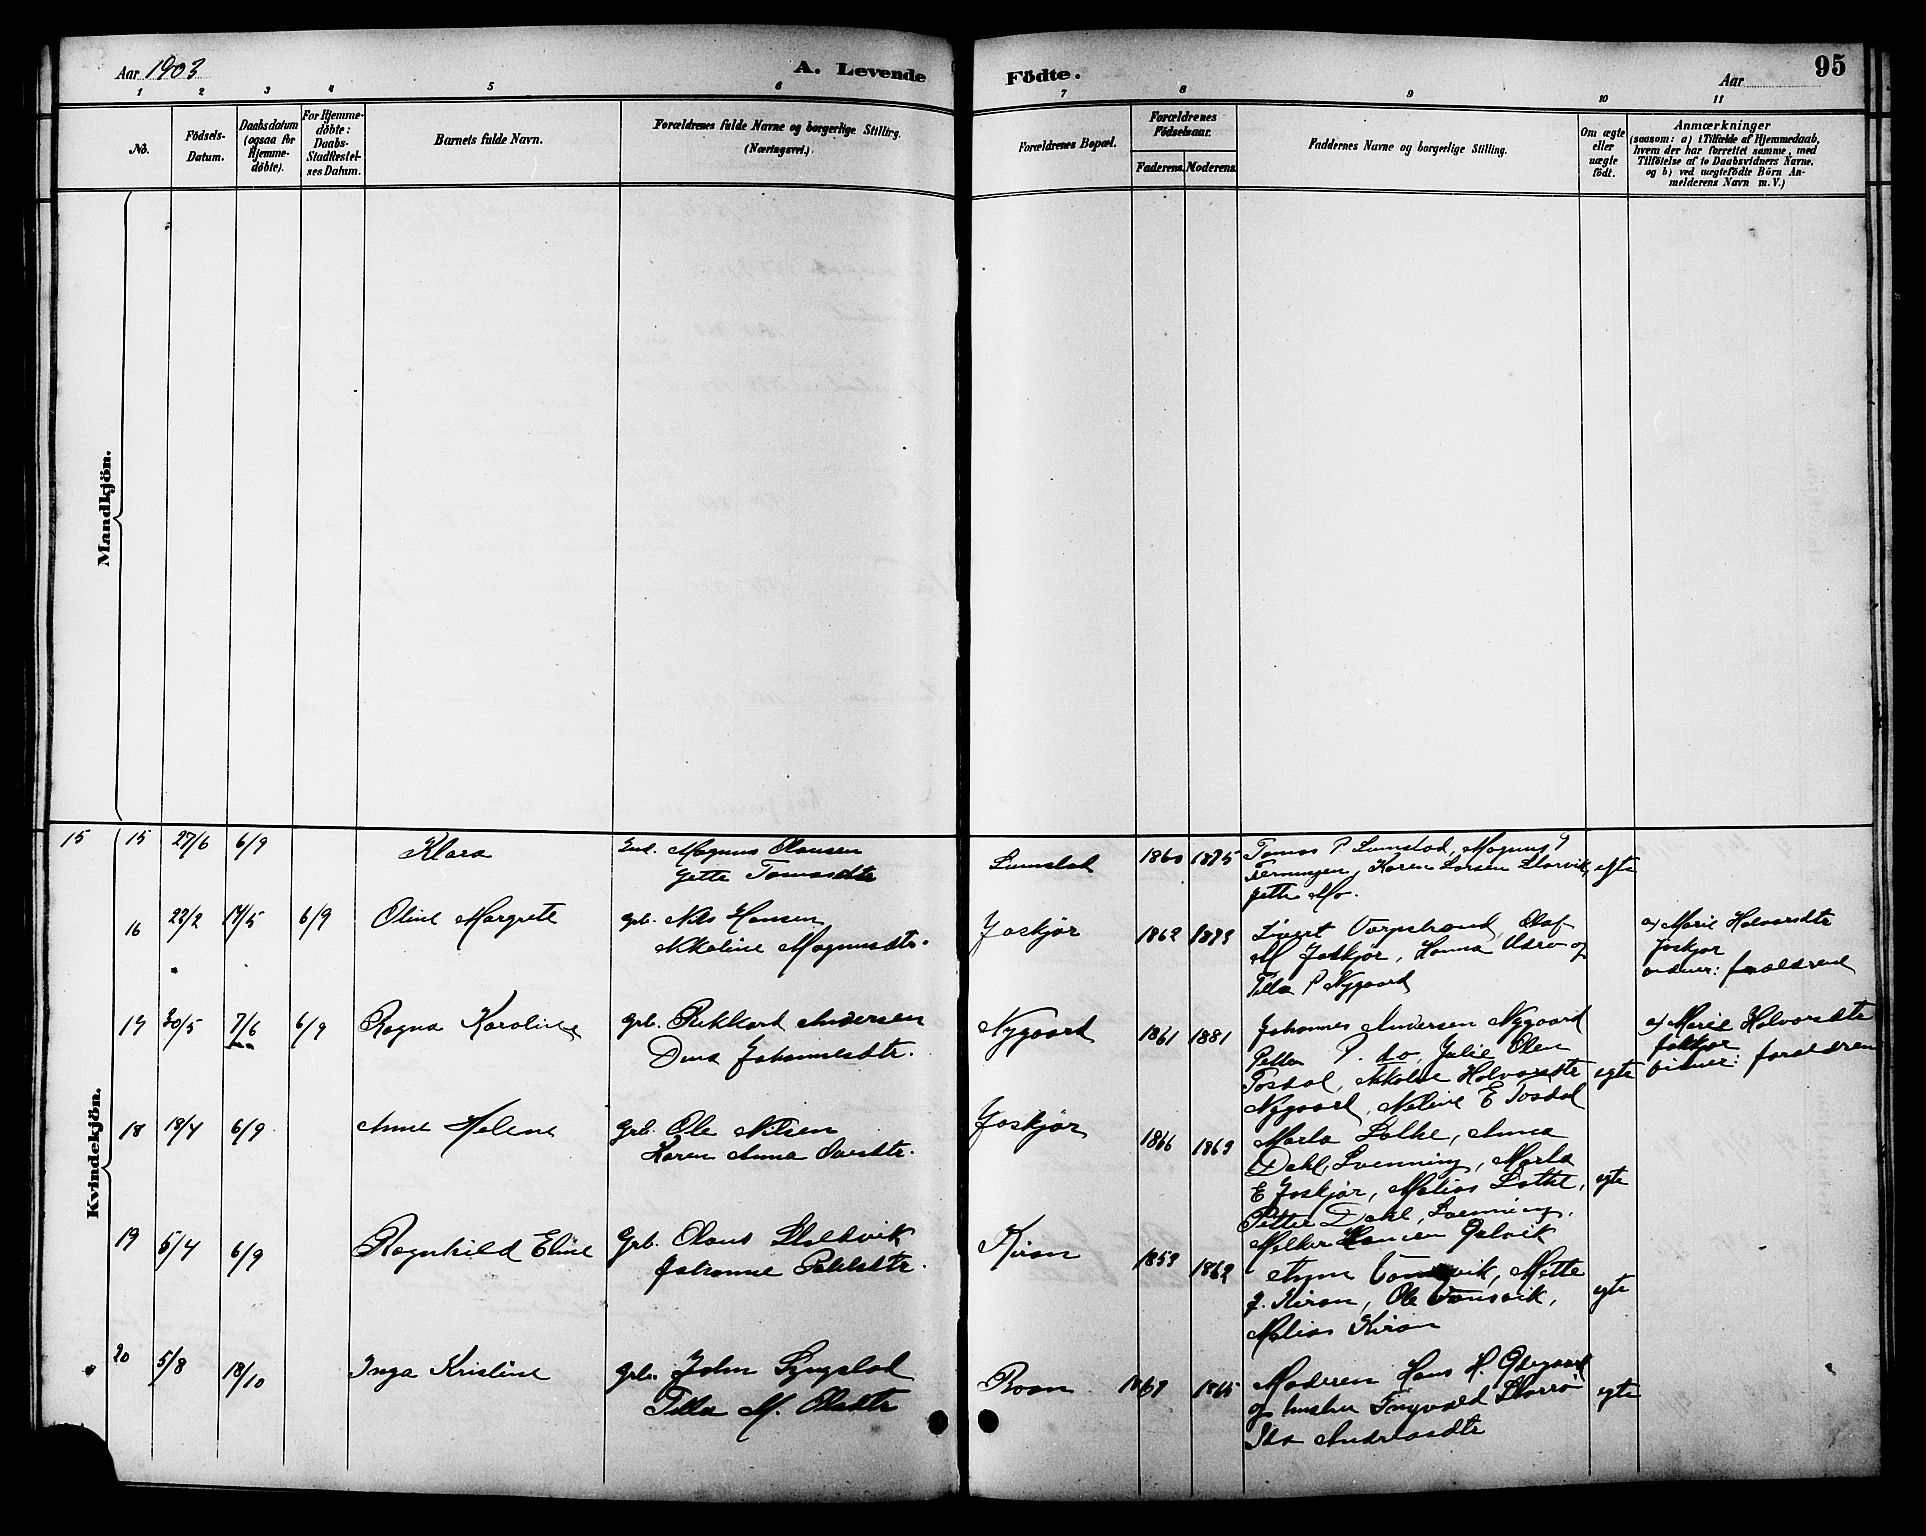 Aar 1903
A. Levende
Födte.
Aar
95
1 2 3 4 5 6 7 8 9 10 11
No.
Födsels-
Datum.
Daabsdatum
(ogsaa for
Hjemme-
døbte).
For Hjemme-
døbte:
Daabs-
Stadfæstel-
ses Datum.
Barnets fulde Navn.
Forældrenes fulde Navne og borgerlige Stilling.
(Næringsvei.)
Forældrenes Bopæl.
Forældrenes
Födselsaar.
Faderens. Moderens.
Faddernes Navne og borgerlige Stilling.
Om ægte
eller
uægte
födt.
Anmærkninger
(saasom: a) i Tilfælde af Hjemmedaab,
hvem der har forrettet samme, med
Tilföielse af to Daabsvidners Navne,
og b) ved uægtefödte Börn An-
melderens Navn m. V.)
Mandkjön.
Kvindekjön.
15 15 27/6 6/9 Klara
Magnus Olausen
Jette Tomasdtr
1860 1875
Karen Larsen Storvik
egte
Jette Mo.
16 22/2 17/5 6/9 Oline Margrete
grb. Nils Hansen
Nikoline Magnusdtr.
Joskjør
1862
Olaf
M Joskjør, Hanna og
P Nygaard
a/ Marie Halvorsdtr
Joskjør
vidner: forældrene
17 30/5 7/6 6/9 Ragna Karoline
grb. Rikkard Andersen
Dina Johannesdtr.
Nygaard
1861 1881
Johannes Andersen Nygaard
Petter P. do, Julie Olsen
Tosdal, Nikoline Halvorsdtr
Nygaard, Neline E Tosdal
egte
a/ Marie Halvorsdtr
Joskjør
vidner: forældren
18 18/4 6/9 Anne Helene
grb. Ole Nilsen
Karen Anna
Joskjør
1866 1869
Marta, Anna
Dahl, Svenning, Marta
E Joskjør, Matias
Petter Dahl, Svenning.
egte
19 5/4 6/9 Ragnhild Eline
grb. Olaus Stokkvik
Johanne
Kiran
1859 1862
Melker Hansen
Mette
J. Kiran, Ole
Matias Kiran
egte
20 5/8 18/10 Inga Kristine
grb. John Lyngstad
M. Olsdtr
Roan
1865
Moderen Hans H. Ødegaard
og hustru Ingvald Storrø
Ida Andreasdtr
egte